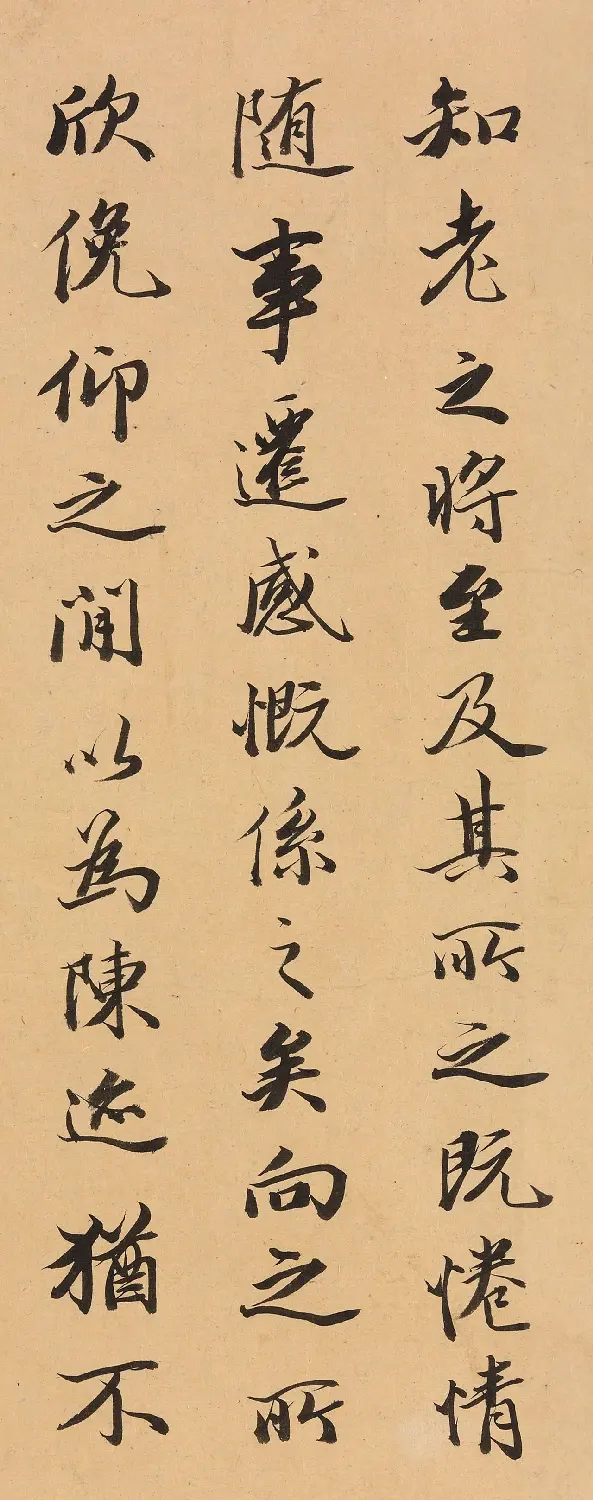 知老之將至及其所之既惓情
随事遷感慨係之矣向之所
欣俛仰之間以為陳迹猶不